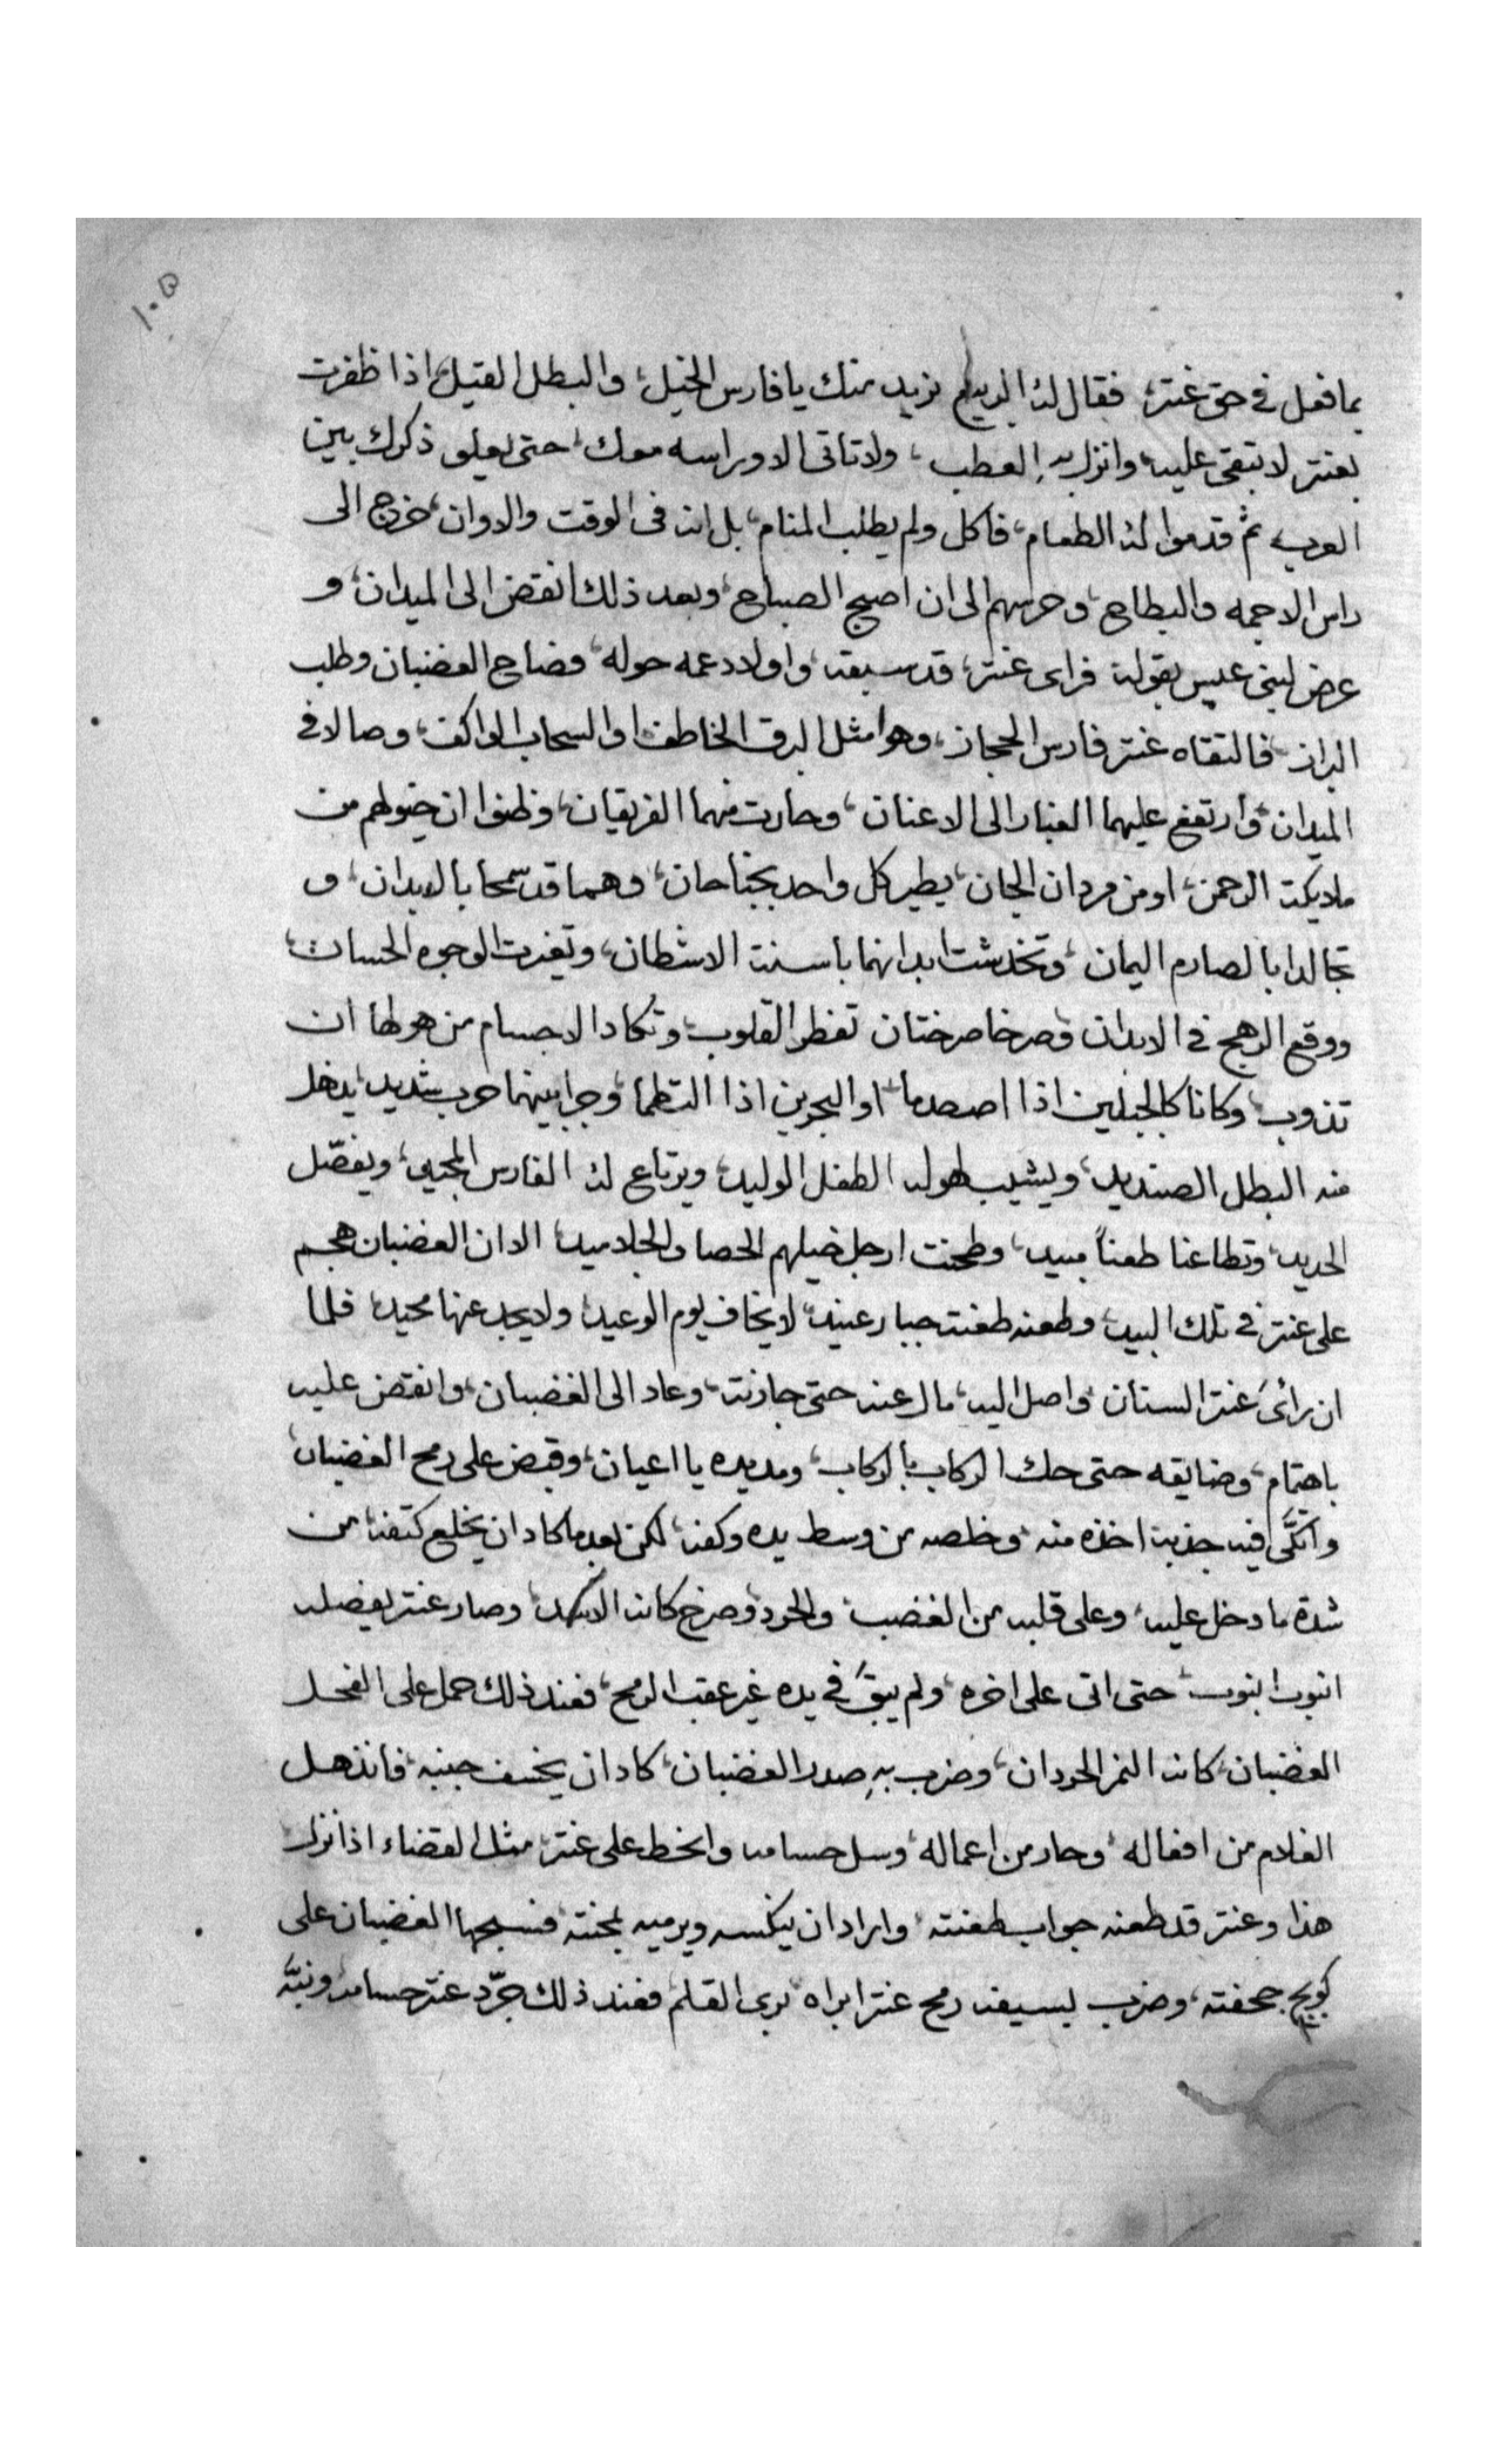 ١٠٥
بما فعل في حق عنتر، فقال له الربيع نريد منك يا فارس الخيل، والبطل القيل، اذا ظفرت
بعنتر لا تبقى عليه، وانزل بهِ العطب، ولا تاتى الا وراسه معك، حتى يعلو ذكرك بين
العرب، ثم قدموا له الطعام، فاكل ولم يطلب المنام، بل انه فى الوقت والاوان، خرج الى
راس الاجمه والبطاح، وحرسهم الى ان اصبح الصباح، وبعد ذلك انقض الى الميدان، و
عرض لبنى عبس بقوله فراى عنتر، قد سبقه، واولاد عمه حوله، فصاح الغضبان وطلب
البراز، فالتقاه عنتر فارس الحجاز، وهوا مثل البرق الخاطف، او السحاب الواكف، وصالا في
الميدان، وارتفع عليهما الغبار الى الاعنان، وحارت منهما الفريقان، وظنوا ان خيولهم من
ملايكة الرحمن، او من مردان الجان، يطير كل واحد بجناحان، وهما قد سمحا بالابدان، و
تجالدا بالصارم اليمان، وتخدشت ابدانهما باسنة الاشطان، وتغيرت الوجوه الحسان،
ووقع الرهج في الابدان، وصرخا صرختان تفطر القلوب، وتكاد الاجسام من هولها ان
تذوب، وكانا كالجبلين اذا اصصدما، او البحرين اذا التطما، وجرا بينهما حرب شديد، يذهل
منه البطل الصنديد، ويشيب لهوله الطفل الوليد، ويرتاع له الفارس المجيد، ويفصّل
الحديد، وتطاعنا طعناً مبيد، وطحنت ارجل خيلهم الحصا والجلاميد، الا ان الغضبان هجم
على عنتر في تلك البيد، وطعنه طعنة جبار عنيد، لا يخاف يوم الوعيد، ولا يجد عنها محيد، فلما
ان رائ عنتر السنان، واصل اليه، مال عنه حتى جازته، وعاد الى الغضبان، وانقض عليه
باهتمام، وضايقه حتى حك الركاب بالركاب، ومد يده يا اعيان، وقبض على رمح الغضبان
واتكّى فيه جذبة اخذه منه، وخلصه من وسط يده وكفه، لكن بعد ما كاد ان يخلع كتفه، من
شدة ما دخل عليه، وعلى قلبه من الغضب، والحرد، وصرخ كانه الاسد، وصار عنتر يفصله
انبوب انبوب، حتى اتى على اخره، ولم يبقَ في يده غير عقب الرمح، فعند ذلك حمل على الفحل
الغضبان، كانه النمر الحردان، وضرب بهِ صدر الغضبان، كاد ان يخسف جنبه، فانذهل
الغلام من افعاله، وحار من اعماله، وسل حسامه وانحط على عنتر، مثل القضاء اذا نزل
هذا وعنتر قد طعنه جواب طعنته، وا اراد ان ينكسه ويرميه بمحنته، فسبحها الغضبان على
جحفته، وضرب بسيفه رمح عنتر ابراه بري القلم، فعند ذلك جرّد عنتر حسامه،